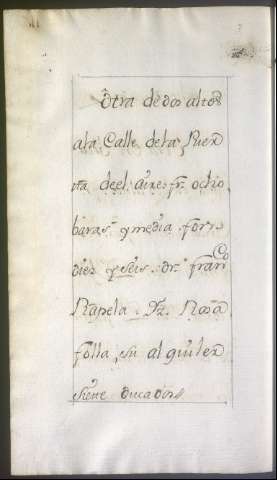 Otra de dos altos
a la Calle de la Puer
ta de el aire fr. ocho
baras y media fon.
diez y seis. Dr. franco
Rapela
folla, su alquiler
siene ducados